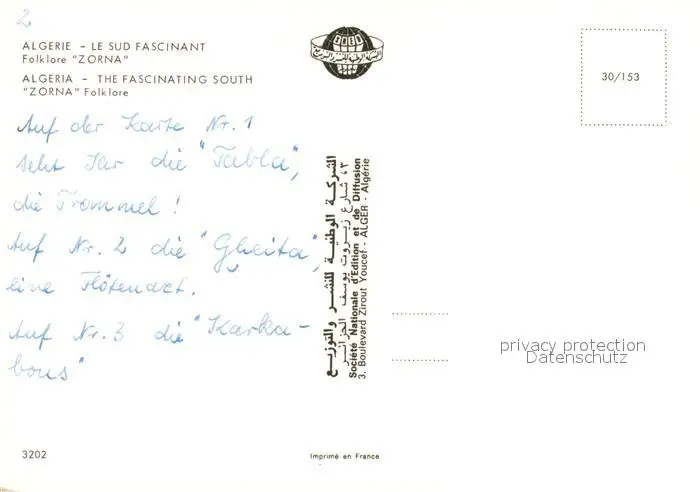 2
ALGERIE - LE SUD FASCINANT
Folklore "ZORNA"
ALGERIA - THE FASCINATING SOUTH
"ZORNA" Folklore
Auf der Karte Nr. 1
seht Ihr die "Tabla",
die Trommel!
Auf Nr. 2 die "Gheita",
eine Flötenart.
Auf Nr. 3 die "Karka-
bous"
3202
SNED
الشركة الوطنية للنشر والتوزيع
الشركة الوطنية للنشر والتوزيع
٣، شارع زيروت يوسف الجزائر
Société Nationale d'Edition et de Diffusion
3, Boulevard Zirout Youcef - ALGER - Algérie
Imprimé en France
30/153
privacy protection
Datenschutz